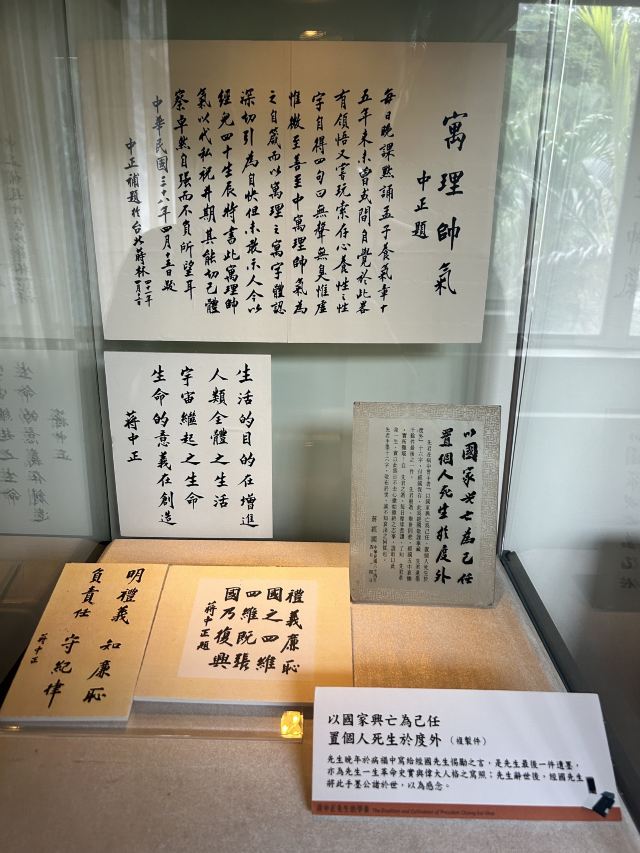 寓理帥氣
中正題
每日晚課默誦孟子養氣章十
五年來未曾或間自覺於此略
有領悟又嘗玩索存心養性之性
字自得四句曰無聲無臭惟虛
惟微至善至中寓理帥氣為
之自箴而以寓理之寓字體認
深切引為自快但未敢示人今以
經兒四十生辰特書此寓理帥
氣以代私祝并期其能切己體
察卓然自强而不負所望耳
中華民國三十八年四月十五日題
中正補題於台北蔣林
生活的目的在增進
人類全體之生活
宇宙繼起之生命
生命的意義在創造
蔣中正
以國家興亡為己任
置個人死生於度外
蔣經國
明禮義 知廉恥
負責任 守紀律
蔣中正
禮義廉恥
國之四維
四維既張
國乃復興
蔣中正題
以國家興亡為己任
置個人死生於度外（複製件）
先生晚年於病榻中寫給經國先生惕勵之言，是先生最後一件遺墨，
亦為先生一生革命史實與偉大人格之寫照；先生辭世後，經國先生
將此手墨公諸於世，以為感念。